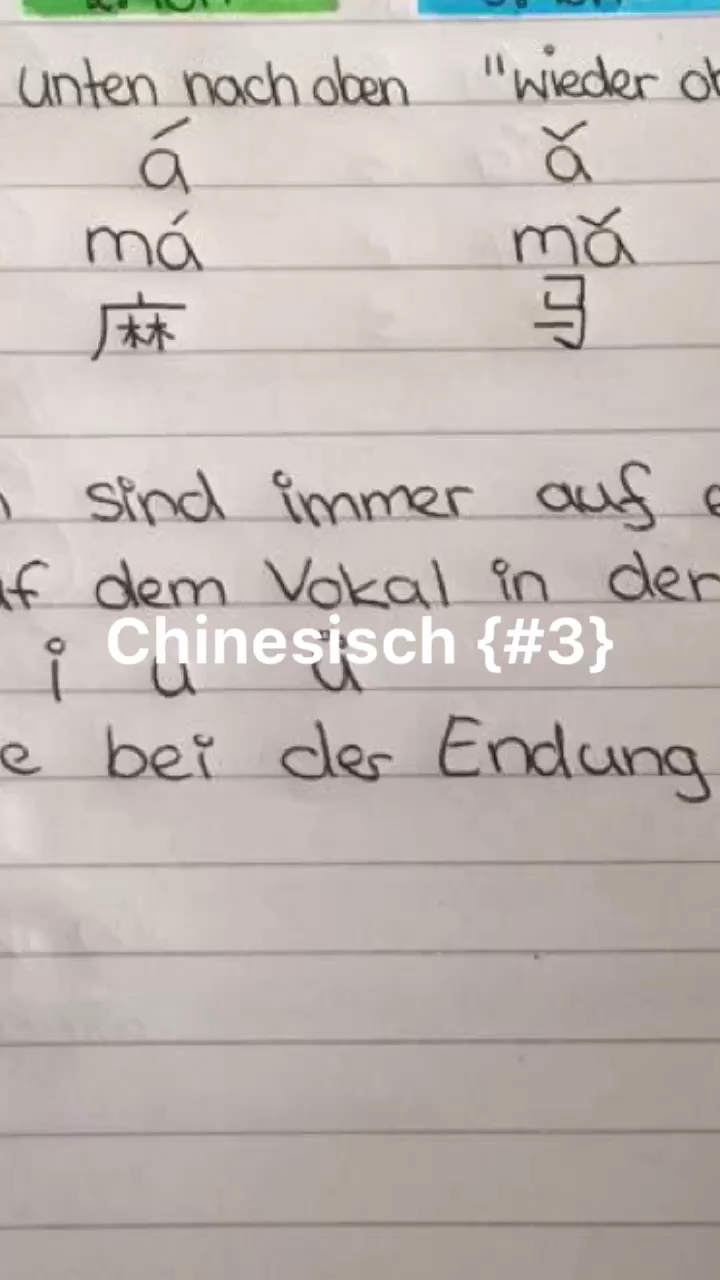 unten nach oben "wieder
á ǎ
má mǎ
麻 马
sind immer auf
dem Vokal in der
Chinesisch {#3}
i u ü
bei der Endung